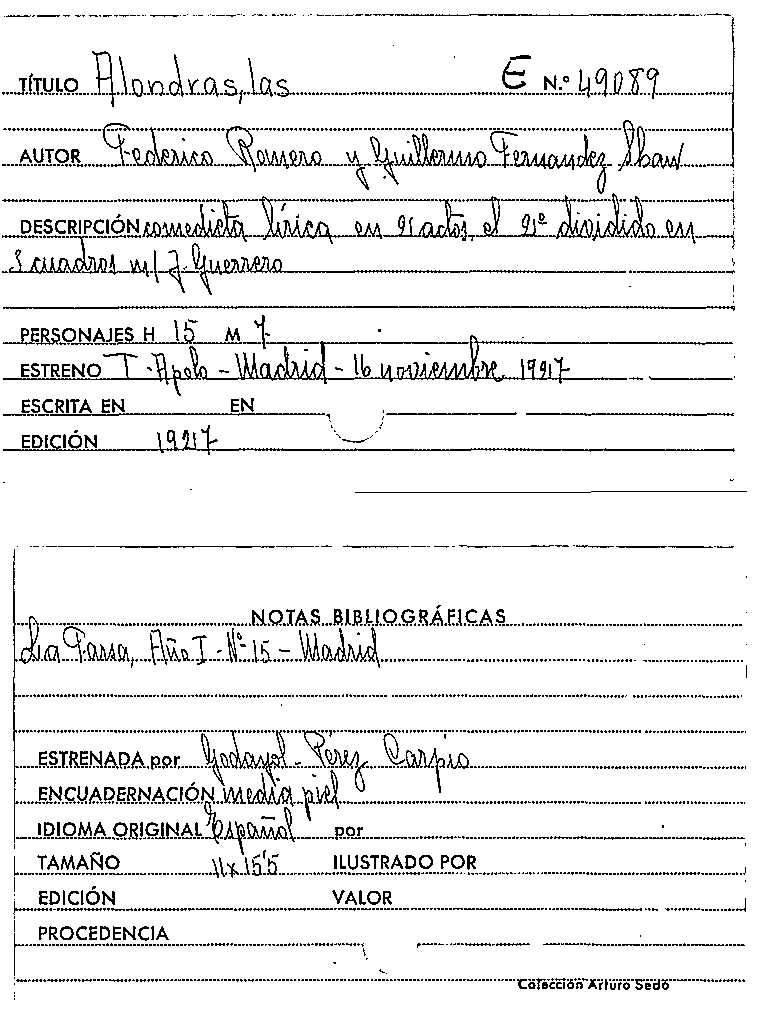 TÍTULO Alondras, las E N.º 49089
AUTOR Federico Romero y Guillermo Fernandez Shaw
DESCRIPCIÓN comedieta lírica en 2 actos, el 2º dividido en
3 cuadros m/ J. Guerrero
PERSONAJES H 15 M 7
ESTRENO T. Apolo - Madrid - 16 noviembre 1927
ESCRITA EN EN
EDICIÓN 1927
NOTAS BIBLIOGRÁFICAS
La Farsa, Año I - Nº 15 - Madrid
ESTRENADA por Godayol - Pérez Carpio
ENCUADERNACIÓN media piel
IDIOMA ORIGINAL Español por
TAMAÑO 11x15'5 ILUSTRADO POR
EDICIÓN VALOR
PROCEDENCIA
Colección Arturo Sedó